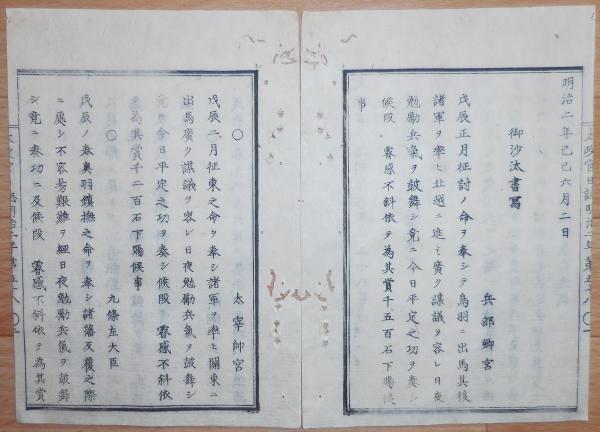 明治二年己巳六月二日
御沙汰書冩
兵部卿宮
戊辰正月征討ノ命ヲ奉シテ鳥羽ニ出馬其後
諸軍ヲ率ヒ北越ニ進ミ廣ク謀議ヲ容レ日夜
勉勵兵氣ヲ鼓舞シ竟ニ今日平定之功ヲ奏シ
候段 叡感不斜依テ為其賞千五百石下賜候
事
〇
太宰帥宮
戊辰二月征東之命ヲ奉シ諸軍ヲ率ヒ關東ニ
出馬廣ク謀議ヲ容レ日夜勉勵兵氣ヲ鼓舞シ
竟ニ今日平定之功ヲ奏シ候段 叡感不斜依
テ為其賞千二百石下賜候事
〇
九條左大臣
戊辰ノ春奥羽鎮撫之命ヲ奉シ諸藩反覆之際
ニ處シ不容易艱難ヲ經日夜勉勵兵氣ヲ鼓舞
シ竟ニ奏功ニ及候段 叡感不斜依テ為其賞